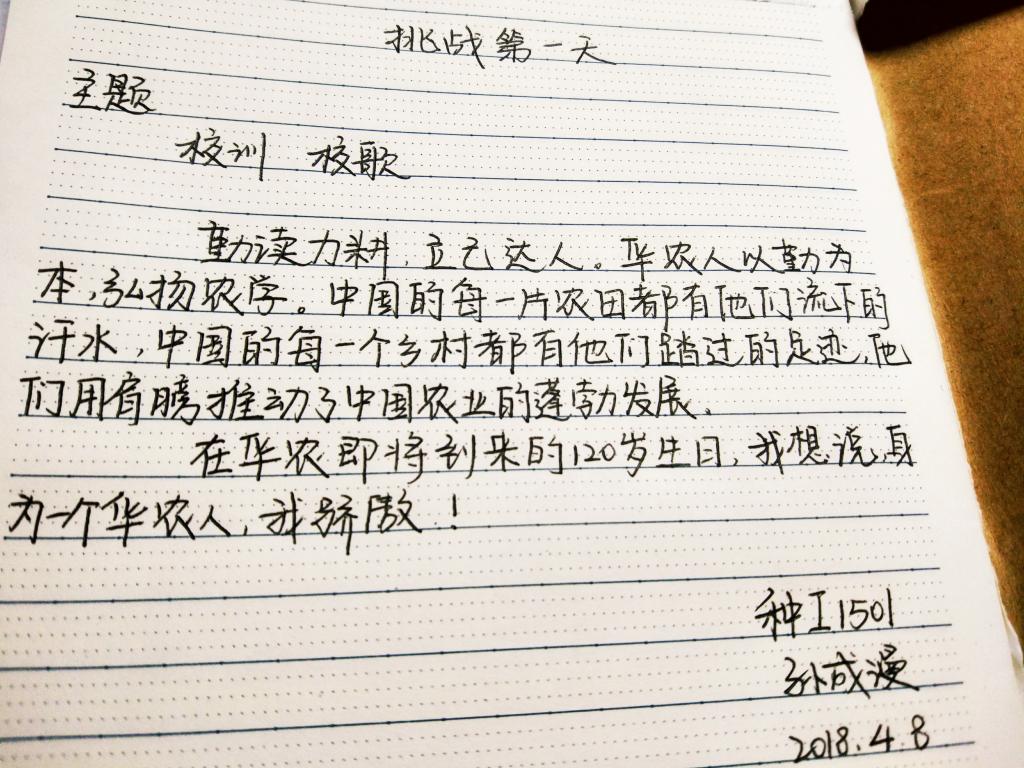 挑战第一天
主题
校训 校歌
勤读力耕,立己达人。华农人以勤为
本,弘扬农学。中国的每一片农田都有他们流下的
汗水,中国的每一个乡村都有他们踏过的足迹,他
们用肩膀推动了中国农业的蓬勃发展.
在华农即将到来的120岁生日,我想说,身
为一个华农人,我骄傲!
种工1501
孙成漫
2018.4.8